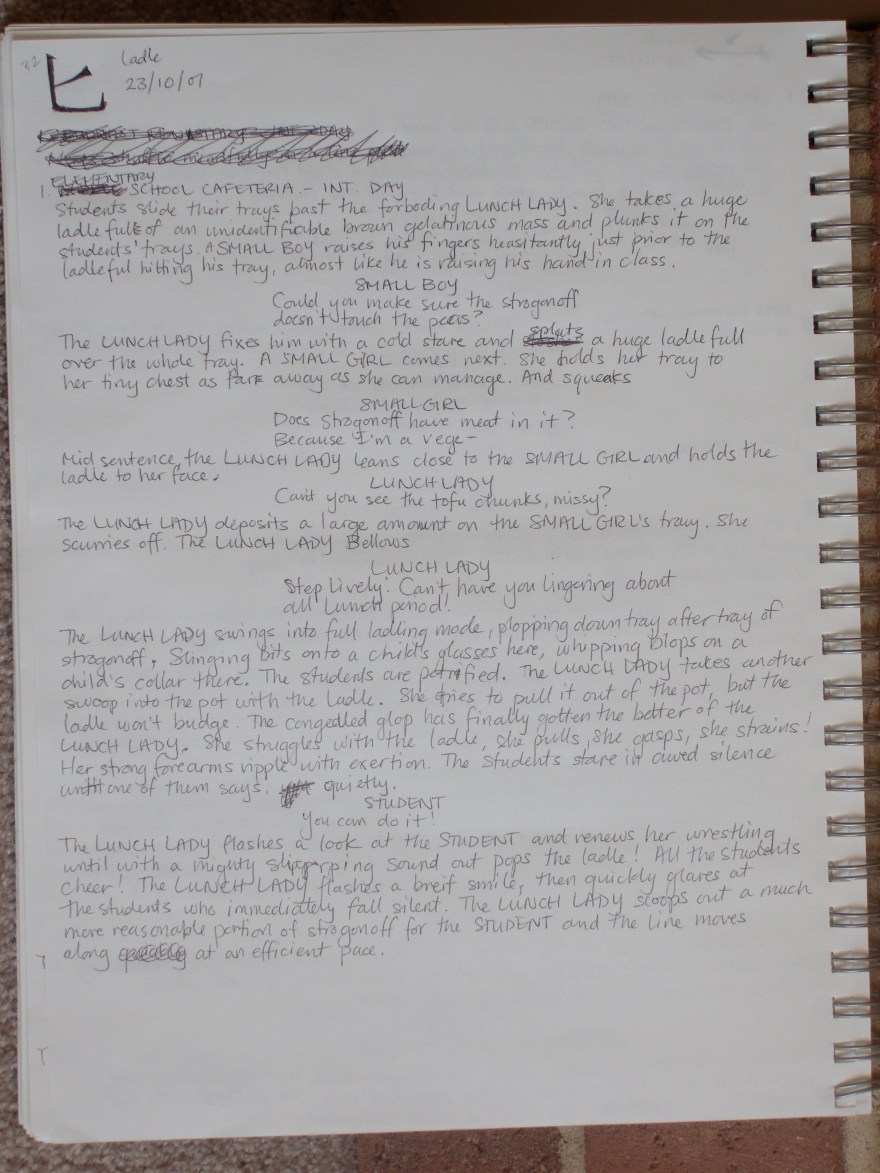 匕
ladle
23/10/07
ELEMENTARY
1. SCHOOL CAFETERIA. - INT. DAY
Students slide their trays past the forboding LUNCH LADY. She takes a huge
ladle full of an unidentifiable brown gelatinous mass and plunks it on the
students' trays. A SMALL BOY raises his fingers heasitantly just prior to the
ladleful hitting his tray, almost like he is raising his hand in class.
SMALL BOY
Could you make sure the strogonoff
doesn't touch the peas?
The LUNCH LADY fixes him with a cold stare and splats a huge ladle full
over the whole tray. A SMALL GIRL comes next. She holds her tray to
her tiny chest as far away as she can manage. And squeaks
SMALL GIRL
Does Strogonoff have meat in it?
Because I'm a vege-
Mid sentence, the LUNCH LADY leans close to the SMALL GIRL and holds the
ladle to her face.
LUNCH LADY
Can't you see the tofu chunks, missy?
The LUNCH LADY deposits a large amount on the SMALL GIRL's tray. She
scurries off. The LUNCH LADY Bellows
LUNCH LADY
Step Lively! Can't have you lingering about
all Lunch period!
The LUNCH LADY swings into full ladling mode, plopping down tray after tray of
strogonoff, Slinging bits onto a child's glasses here, whipping blops on a
child's collar there. The students are petrified. The LUNCH LADY takes another
swoop into the pot with the Ladle. She tries to pull it out of the pot, but the
ladle won't budge. The congedled glop has finally gotten the better of the
LUNCH LADY. She struggles with the ladle, she pulls, she gasps, she strains!
Her strong forearms ripple with exertion. The students stare in awed silence
until one of them says, quietly.
STUDENT
You can do it!
The LUNCH LADY flashes a look at the STUDENT and renews her wrestling
until with a mighty slipping sound out pops the ladle! All the students
cheer! The LUNCH LADY flashes a breif smile, then quickly glares at
the students who immediately fall silent. The LUNCH LADY scoops out a much
more reasonable portion of strogonoff for the STUDENT and the line moves
along at an efficient pace.